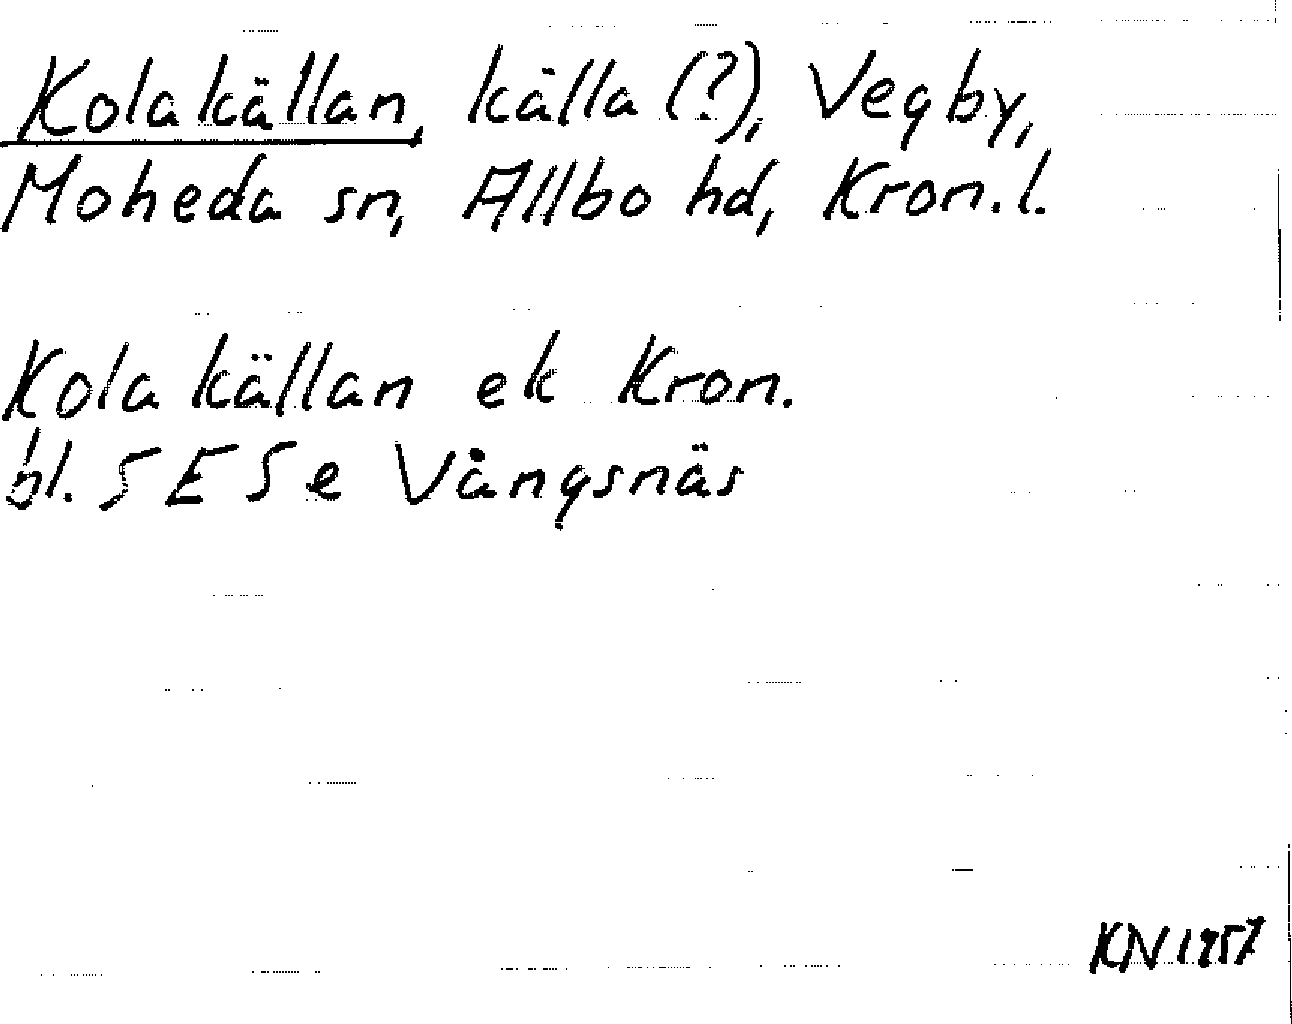 Kolakällan, källa (?), Vegby,
Moheda sn, Allbo hd, Kron.l.
Kolakällan ek Kron.
bl. 5 E 5 e Vångsnäs
KN 1957